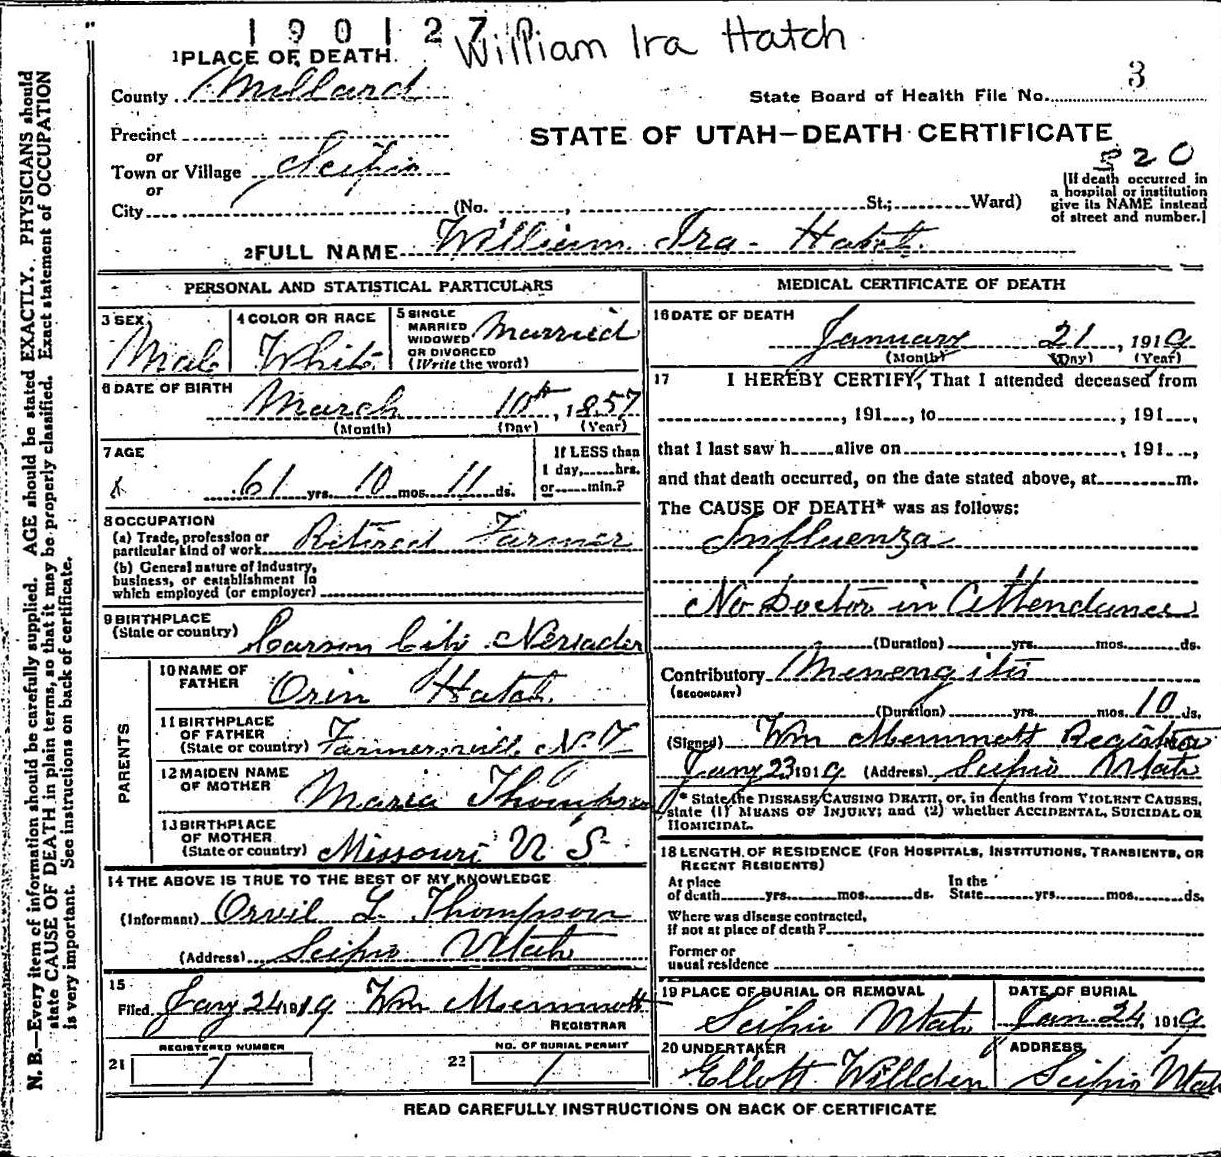 1901270
William Ira Hatch
1 PLACE OF DEATH.
County Millard
3
State Board of Health File No.
Precinct
STATE OF UTAH—DEATH CERTIFICATE
or
320
Town or Village Scipio
or
[If death occurred in a hospital or institution give its NAME instead of street and number.]
City (No. , St.; Ward)
2 FULL NAME William Ira Hatch
PERSONAL AND STATISTICAL PARTICULARS
3 SEX Male
4 COLOR OR RACE White
5 SINGLE MARRIED WIDOWED OR DIVORCED (Write the word) Married
6 DATE OF BIRTH
March 10th, 1857
(Month) (Day) (Year)
7 AGE
61 yrs. 10 mos. 11 ds.
If LESS than
1 day, hrs.
or min.?
8 OCCUPATION
(a) Trade, profession or
particular kind of work Retired Farmer
(b) General nature of industry,
business, or establishment in
which employed (or employer)
9 BIRTHPLACE
(State or country) Carson City Nevader
PARENTS
10 NAME OF FATHER Orin Hatch
11 BIRTHPLACE OF FATHER (State or country) Farmersvill, N. Y
12 MAIDEN NAME OF MOTHER Maria Thompson
13 BIRTHPLACE OF MOTHER (State or country) Missouri U S
14 THE ABOVE IS TRUE TO THE BEST OF MY KNOWLEDGE
(Informant) Orvil L Thompson
(Address) Scipio Utah
15
Filed Jany 24 1919 Wm Memmott
REGISTRAR
REGISTERED NUMBER
21 1
NO. OF BURIAL PERMIT
22 1
MEDICAL CERTIFICATE OF DEATH
16 DATE OF DEATH
January 21, 1919
(Month) (Day) (Year)
17 I HEREBY CERTIFY, That I attended deceased from
, 191 , to , 191 ,
that I last saw h alive on , 191 ,
and that death occurred, on the date stated above, at m.
The CAUSE OF DEATH* was as follows:
Influenza
No Doctor in Attendance
(Duration) yrs. mos. ds.
Contributory Menengitis
(SECONDARY)
(Duration) yrs. mos. 10 ds.
(Signed) Wm Memmott Registrar
Jany 23 1919 (Address) Scipio Utah
* State the DISEASE CAUSING DEATH, or, in deaths from VIOLENT CAUSES,
state (1) MEANS OF INJURY; and (2) whether ACCIDENTAL, SUICIDAL OR
HOMICIDAL.
18 LENGTH OF RESIDENCE (FOR HOSPITALS, INSTITUTIONS, TRANSIENTS, OR
RECENT RESIDENTS)
At place In the
of death yrs. mos. ds. State yrs. mos. ds.
Where was disease contracted,
if not at place of death?
Former or
usual residence
19 PLACE OF BURIAL OR REMOVAL
Scipio Utah
DATE OF BURIAL
Jan. 24, 1919
20 UNDERTAKER
Ellott Willden
ADDRESS
Scipio Utah
READ CAREFULLY INSTRUCTIONS ON BACK OF CERTIFICATE
N. B.—Every item of information should be carefully supplied. AGE should be stated EXACTLY. PHYSICIANS should
state CAUSE OF DEATH in plain terms, so that it may be properly classified. Exact statement of OCCUPATION
is very important. See instructions on back of certificate.